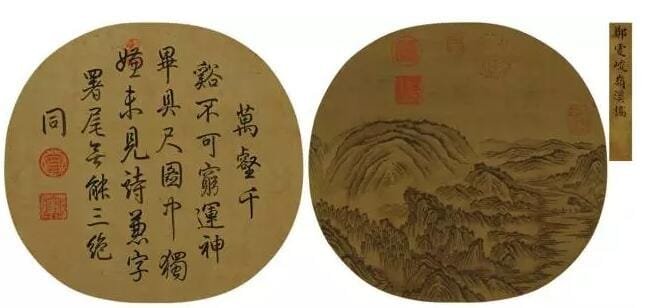 鄭虔峻嶺溪橋
萬壑千
谿不可窮運神
畢具尺圖中獨
嫌未見詩兼字
署尾無能三絶
同